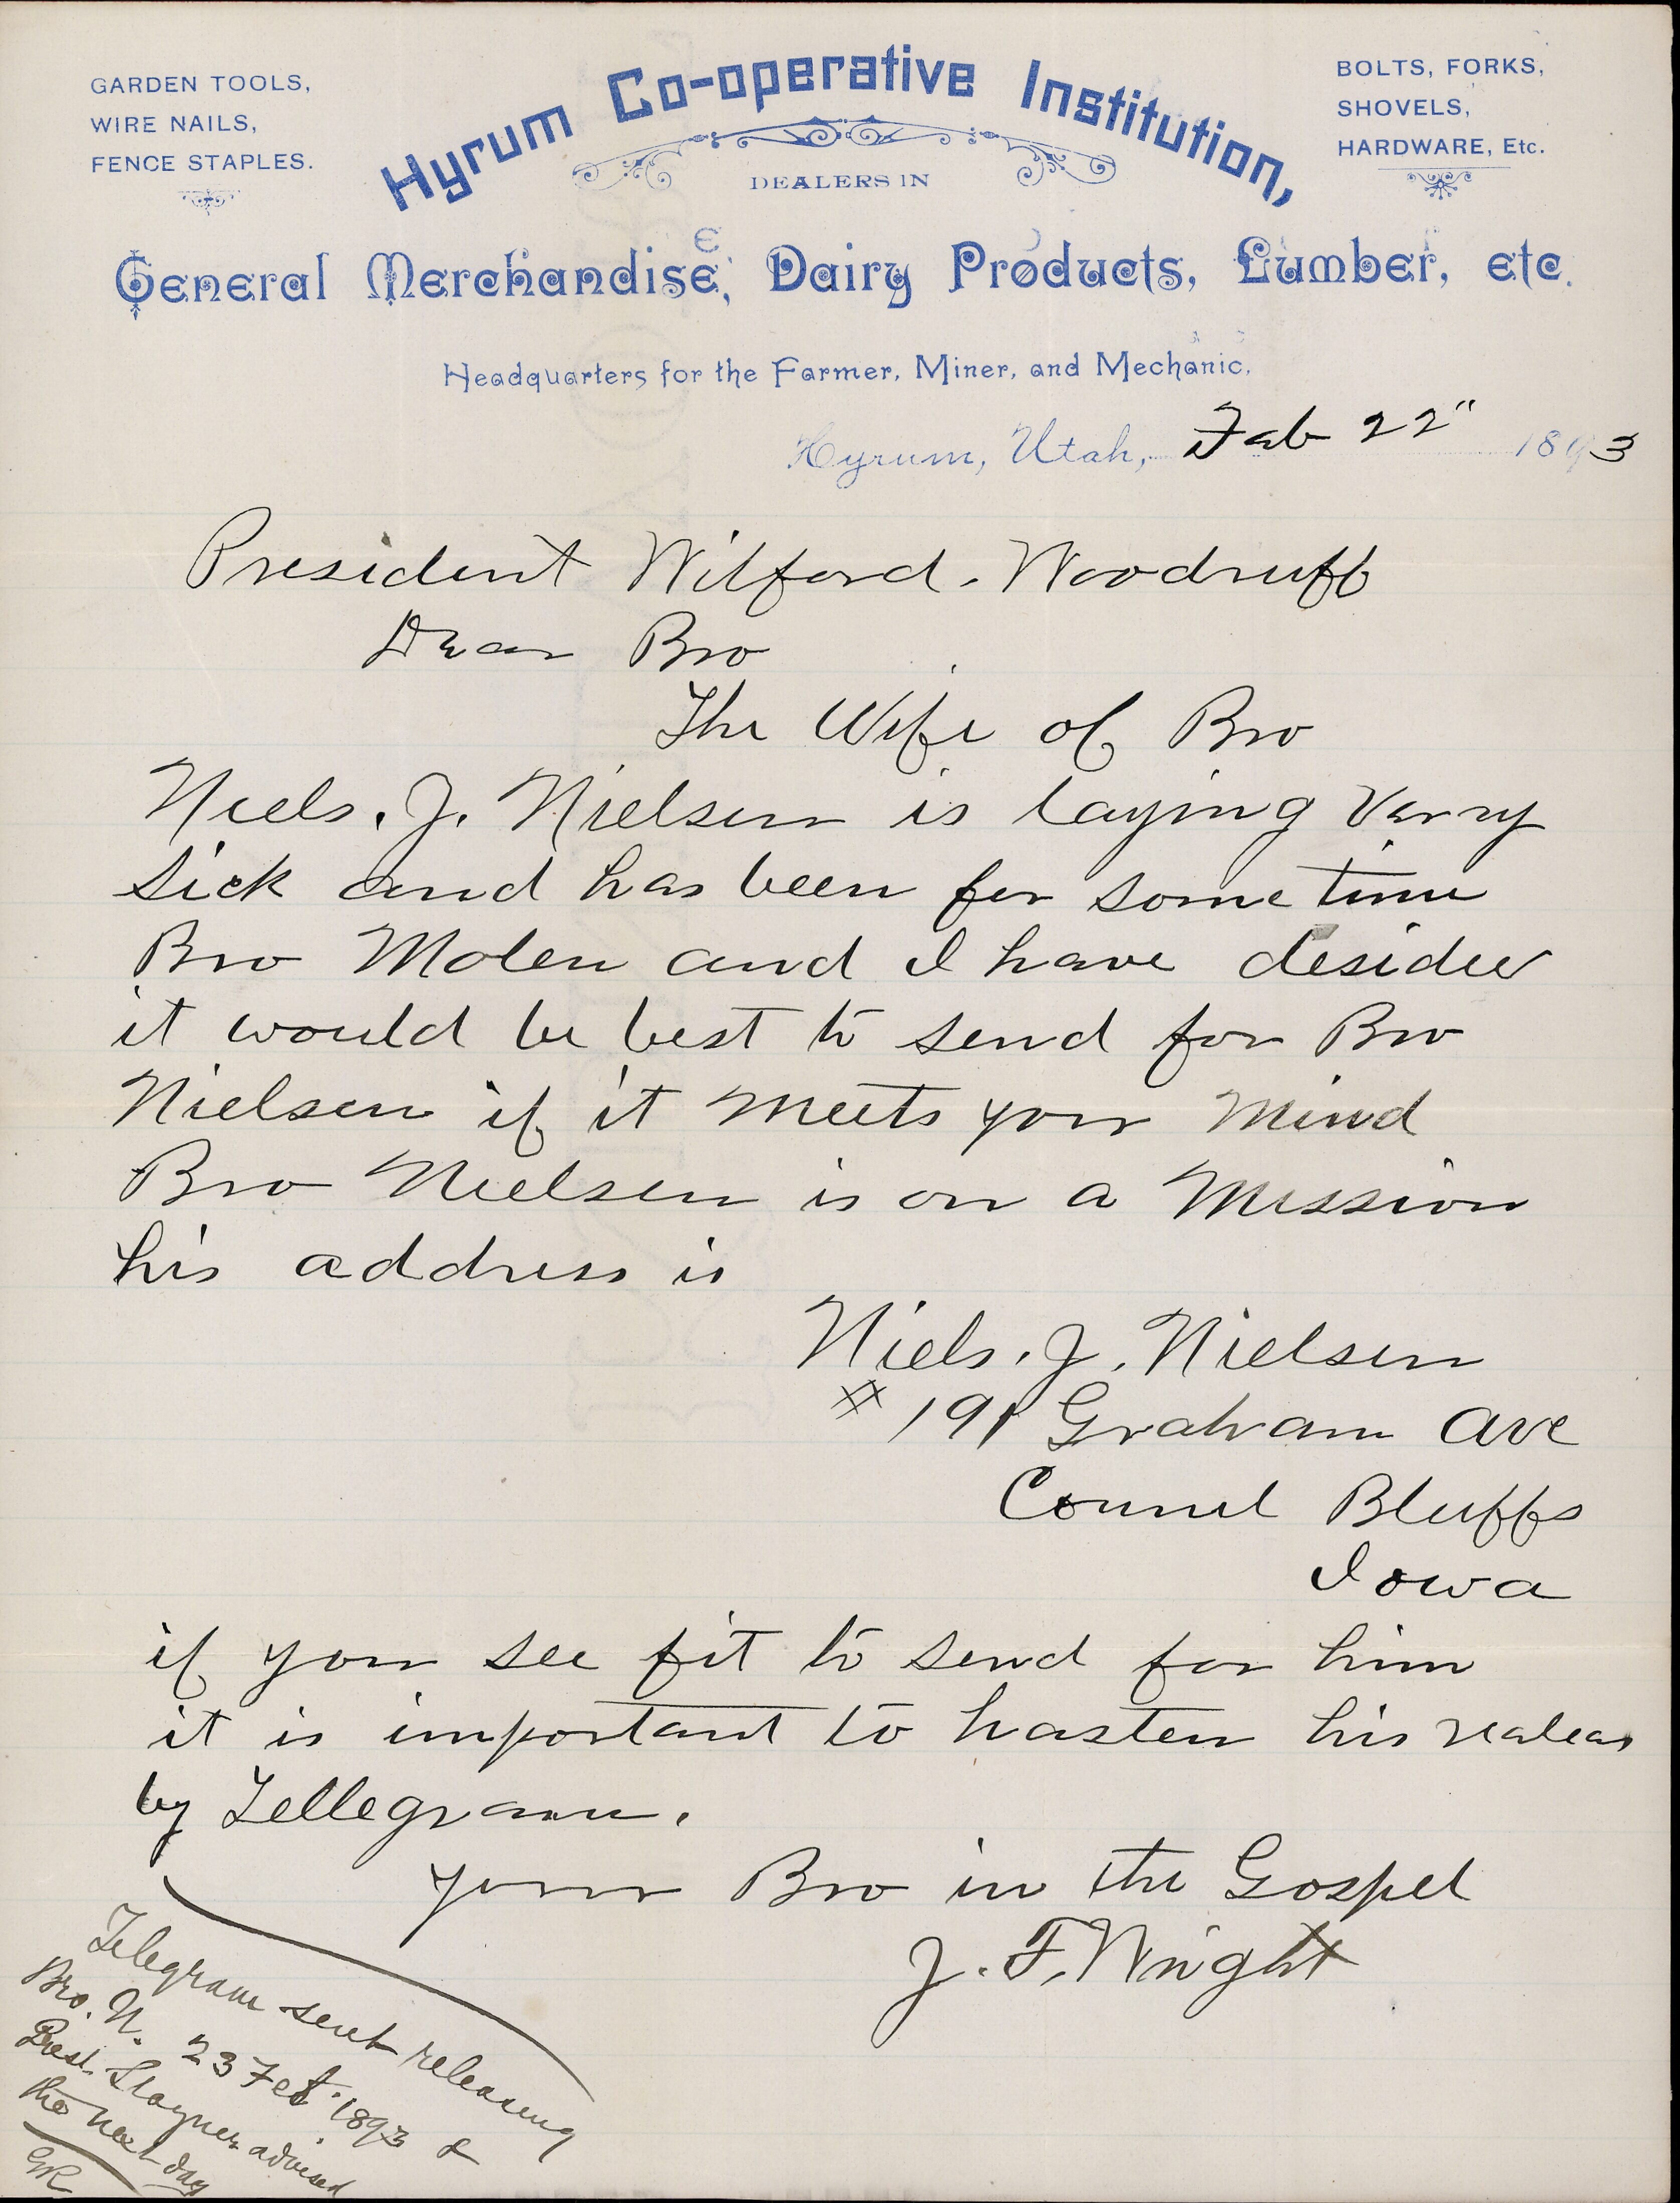 GARDEN TOOLS,
WIRE NAILS,
FENCE STAPLES.
Hyrum Co-operative Institution,
DEALERS IN
BOLTS, FORKS,
SHOVELS,
HARDWARE, Etc.
General Merchandise, Dairy Products, Lumber, etc.
Headquarters for the Farmer, Miner, and Mechanic.
Hyrum, Utah, Feb 22" 1893
President Wilford. Woodruff
Dear Bro
The Wife of Bro
Niels. J. Nielsen is laying Verry
Sick and has been for some time
Bro Molen and I have desided
it would be best to send for Bro
Nielsen if it meets your mind
Bro Nielsen is on a Mission
his address is
Niels. J. Nielsen
# 191 Graham Ave
Council Bluffs
Iowa
if you see fit to send for him
it is important to hasten his realeas
by Tellegram.
your Bro in the Gospel
J. F. Wright
Telegram sent releasing
Bro. N. 23 Feb. 1893 &
Prest. Stayner advised
the next day
GR